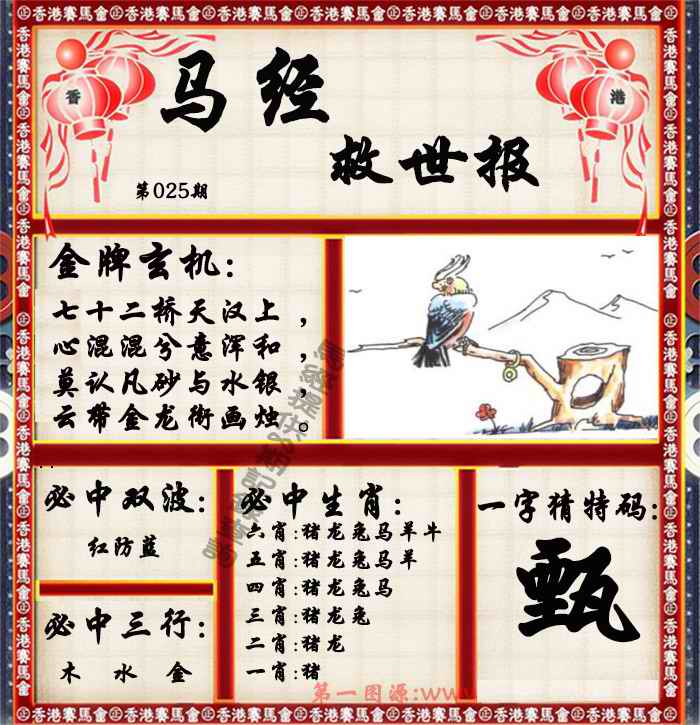 香港賽馬會
香 港
马经
救世报
第025期
金牌玄机:
七十二桥天汉上，
心混混兮意浑和，
莫认凡砂与水银，
云带金龙衔画烛。
必中双波:
红防蓝
必中三行:
木 水 金
必中生肖:
六肖:猪龙兔马羊牛
五肖:猪龙兔马羊
四肖:猪龙兔马
三肖:猪龙兔
二肖:猪龙
一肖:猪
一字猜特码:
甄
第一图源:www